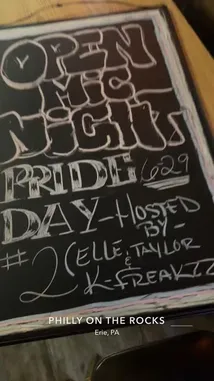 OPEN
MIC
NIGHT
PRIDE 6.29
DAY-HOSTED
BY-
#2 CELLE, TAYLOR
&
K-FREAKZ
PHILLY ON THE ROCKS
Erie, PA